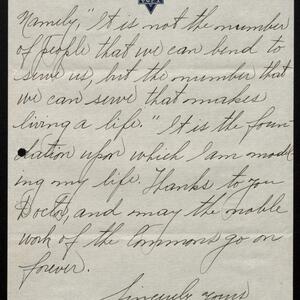 Namely, "It is not the number
of people that we can bend to
serve us, but the number that
we can serve that makes
living a life." It is the foun-
dation upon which I am mod-
ing my life. Thanks to you
Doctor, and may the noble
work of the Commons go on
forever.
Sincerely yours